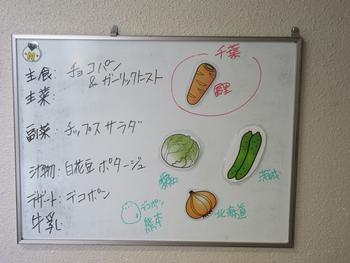 主食: チョコパン
& ガーリックトースト
主菜:
副菜: チップスサラダ
汁物: 白花豆ポタージュ
デザート: デコポン
牛乳
千葉
愛知
茨城
北海道
デコポン
熊本